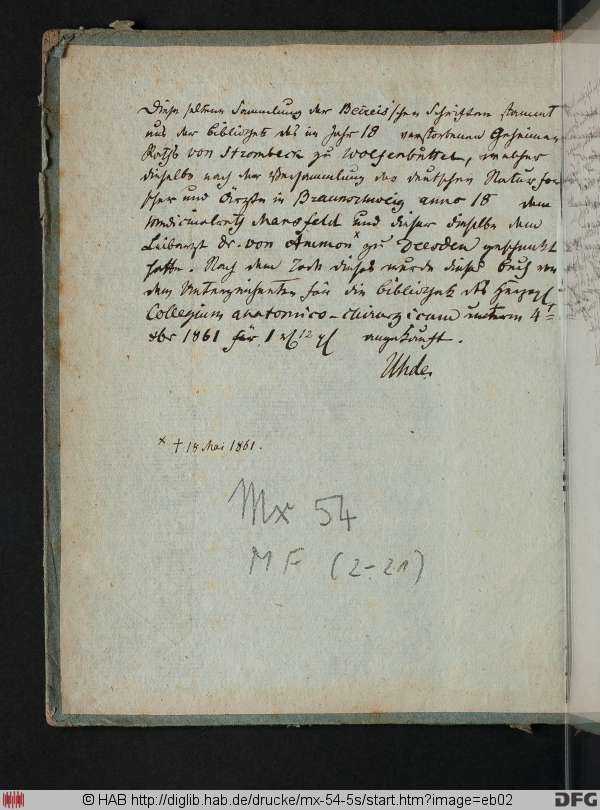 Diese seltene Sammlung der Beireis'schen Schriften stammt
aus der Bibliothek des im Jahr 18 verstorbenen Geheimen
Raths von Strombeck zu Wolfenbüttel, welcher
dieselbe nach der Versammlung der deutschen Naturfor
scher und Ärzte in Braunschweig anno 18 dem
Medicinalrath Mansfeld und dieser dieselbe dem
Leibarzt Dr. von Ammon x zu Dresden geschenkt
hatte. Nach dem Tode dieses wurde dieses Buch von
dem Unterzeichneten für die Bibliothek des Herzogl.
Collegium anatomico-chirurgicum unterm 4t
1861 für 1 12 angekauft.
Uhde.
x † 18 Mai 1861.
Mx 54
MF (2-21)
© HAB http://diglib.hab.de/drucke/mx-54-5s/start.htm?image=eb02
DFG